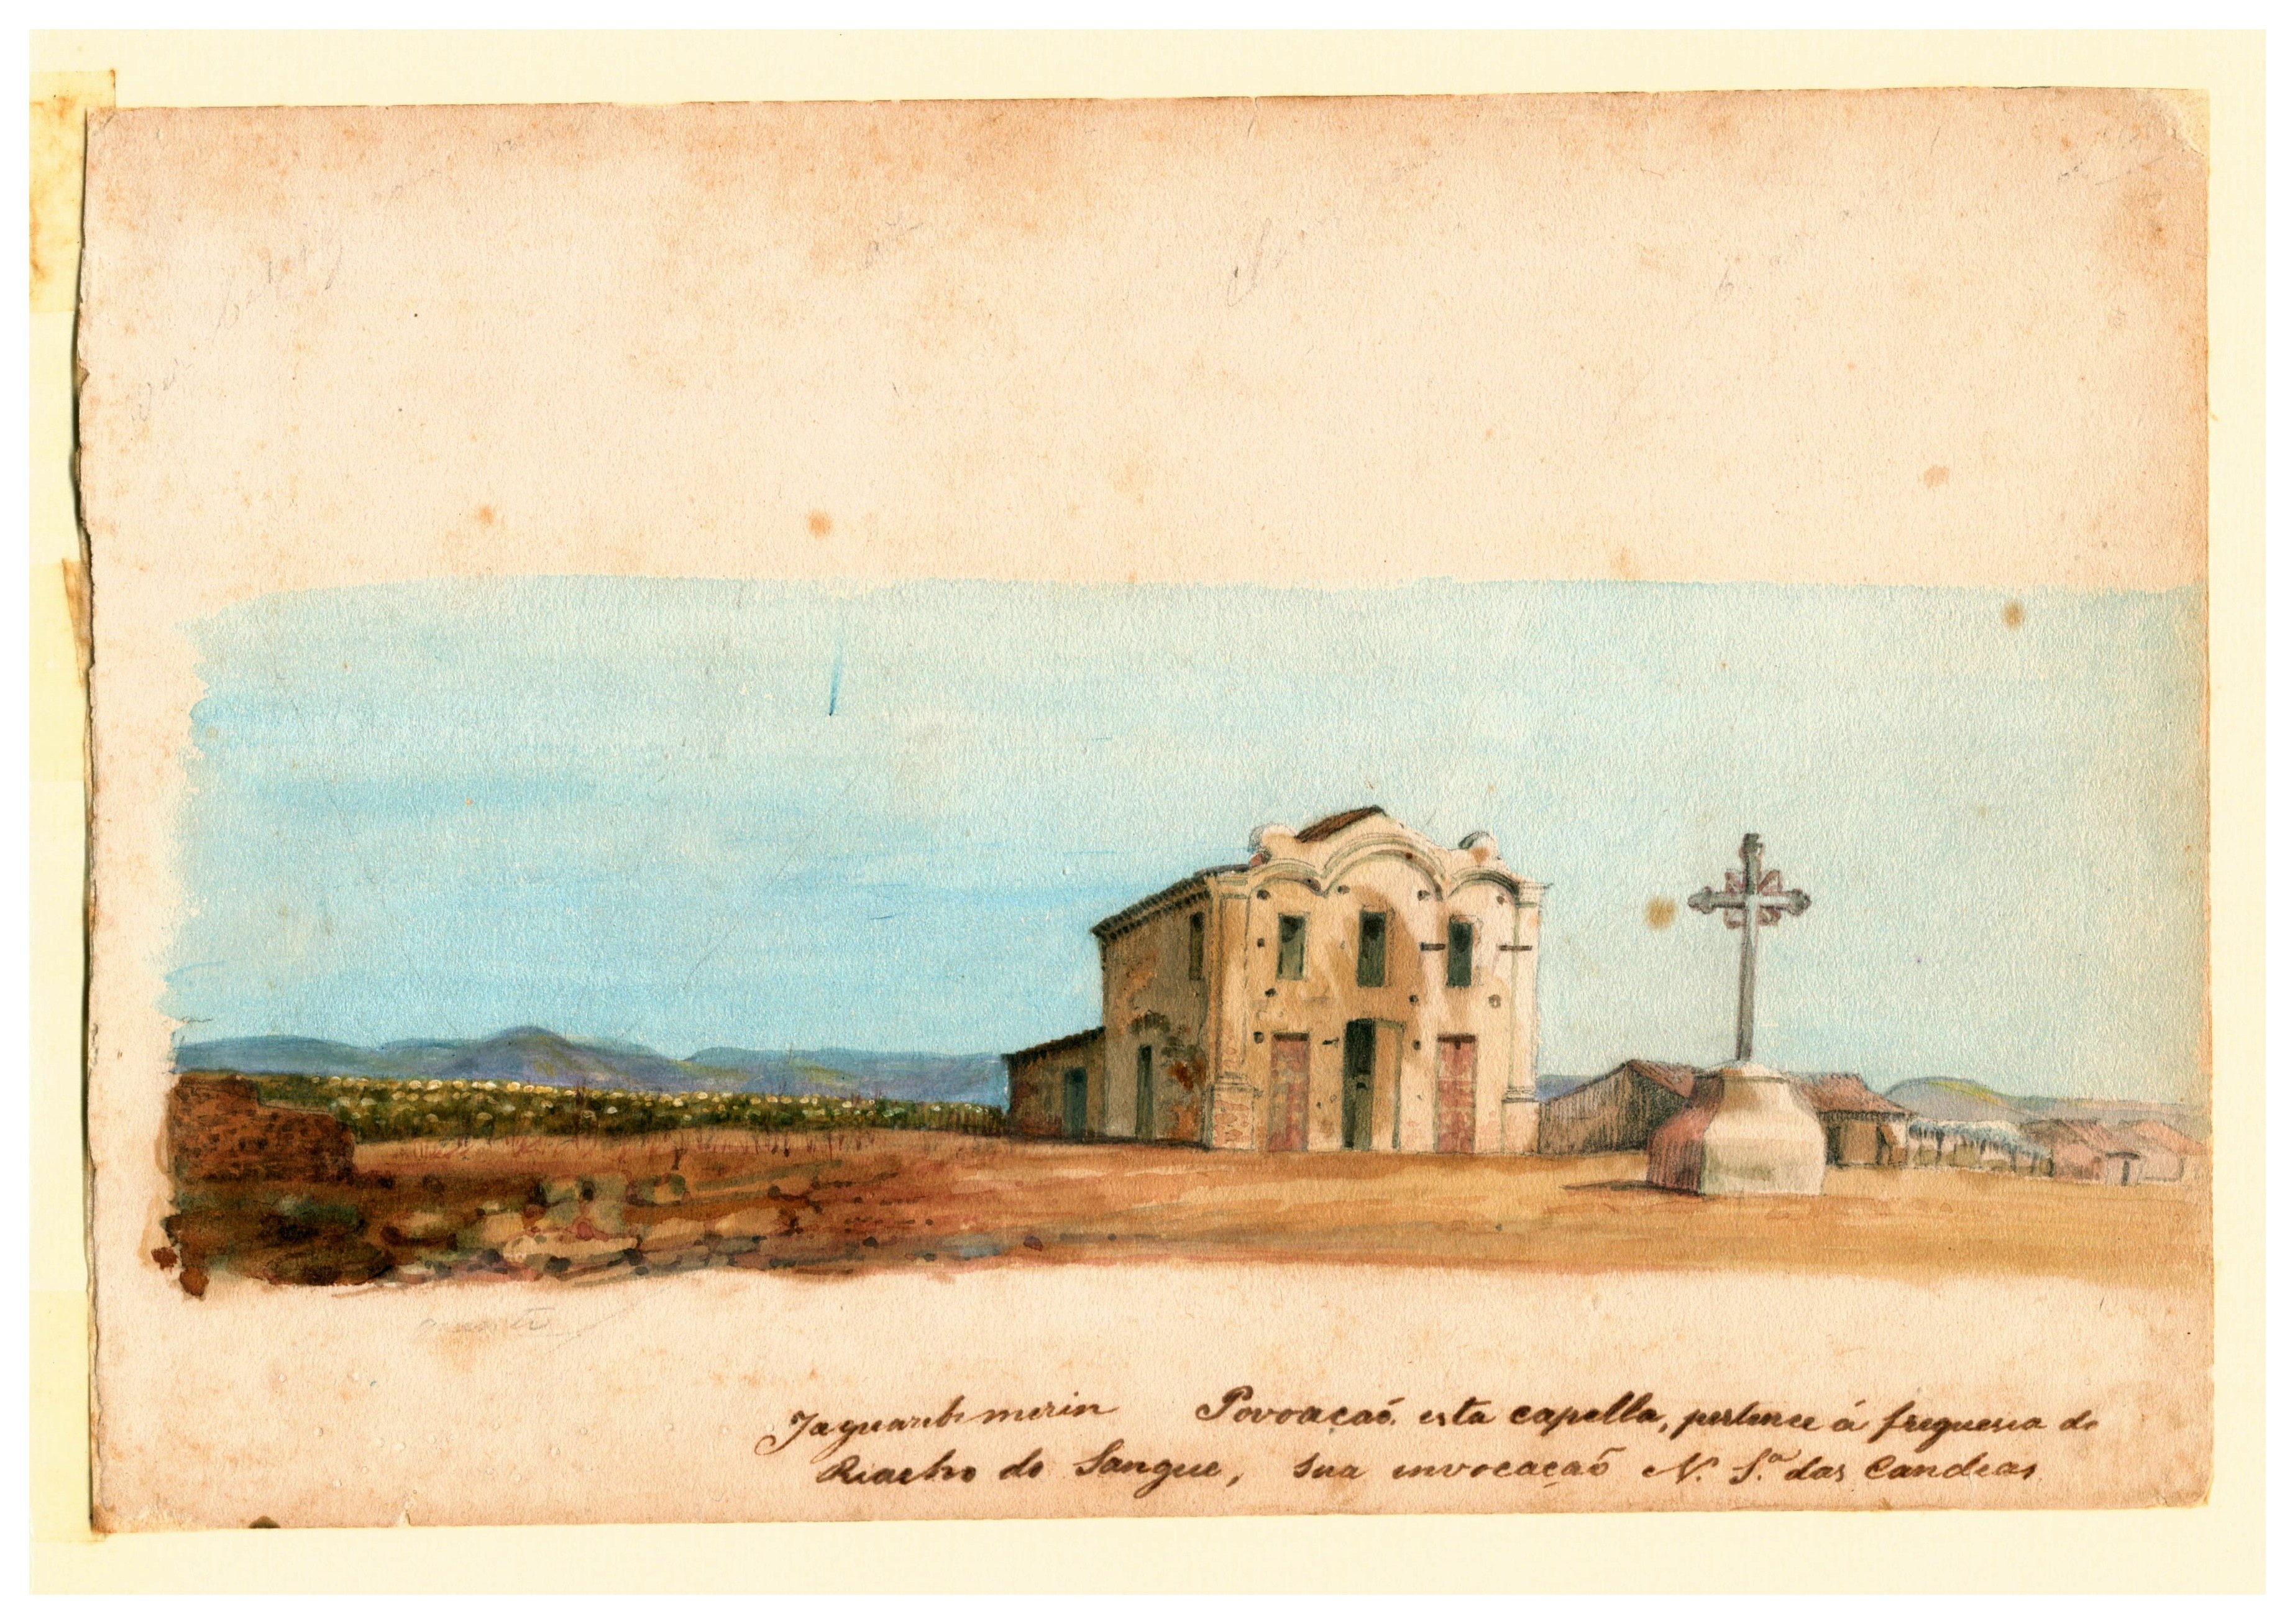 Jaguaribi merin Povoaçaõ esta capella, pertence á freguesia do
Riacho do Sangue, Sua invocaçaõ N. S.ª das Candeas